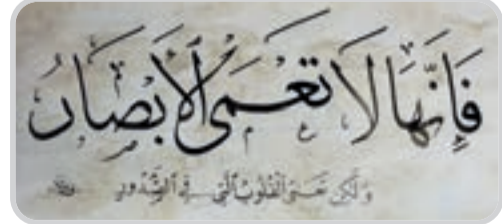 فَإِنَّهَا لَا تَعْمَى الْأَبْصَارُ
وَلَكِن تَعْمَى الْقُلُوبُ الَّتِي فِي الصُّدُورِ